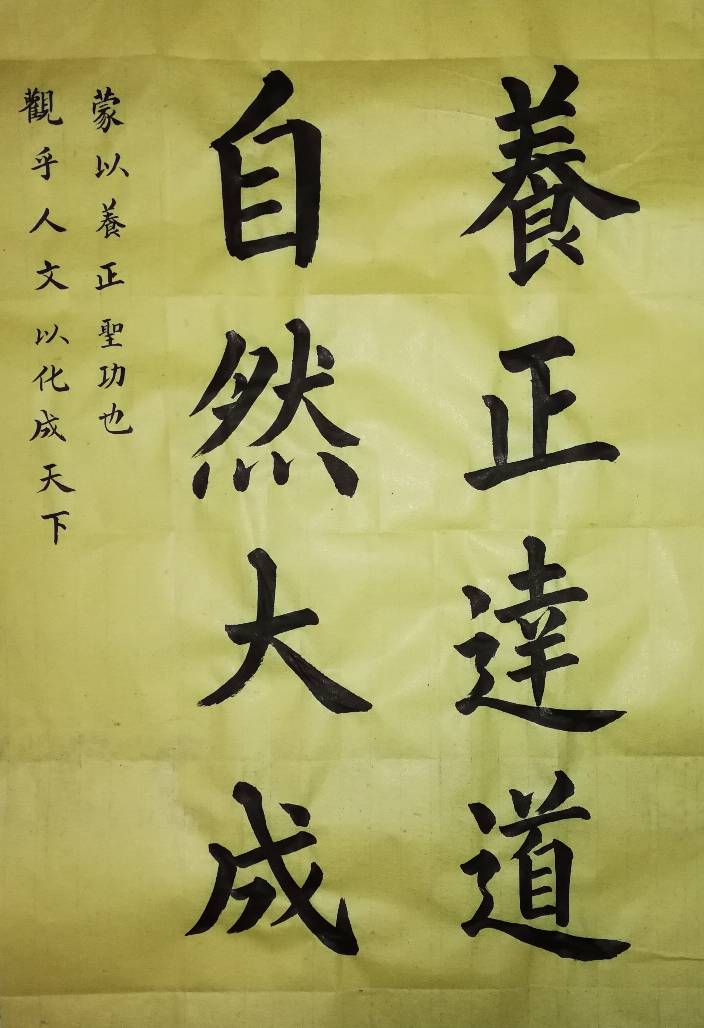 養正達道
自然大成
蒙以養正聖功也
觀乎人文以化成天下